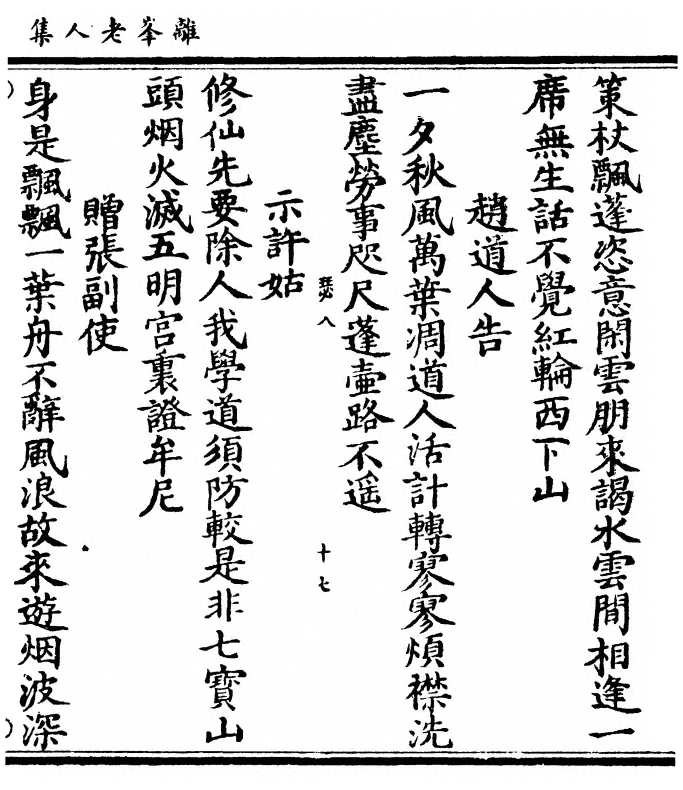 離峯老人集
策杖飄蓬恣意閑雲朋來謁水雲間相逢一
席無生話不覺紅輪西下山
趙道人告
一夕秋風萬葉凋道人活計轉寥寥煩襟洗
盡塵勞事咫尺蓬壺路不遥
十七
示許姑
修仙先要除人我學道須防較是非七寶山
頭烟火滅五明宫裏證牟尼
贈張副使
身是飄飄一葉舟不辭風浪故來遊烟波深